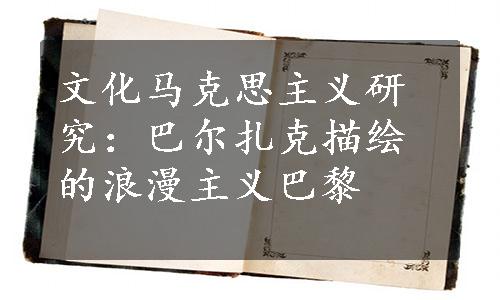 文化马克思主义研
究：巴尔扎克描绘
的浪漫主义巴黎